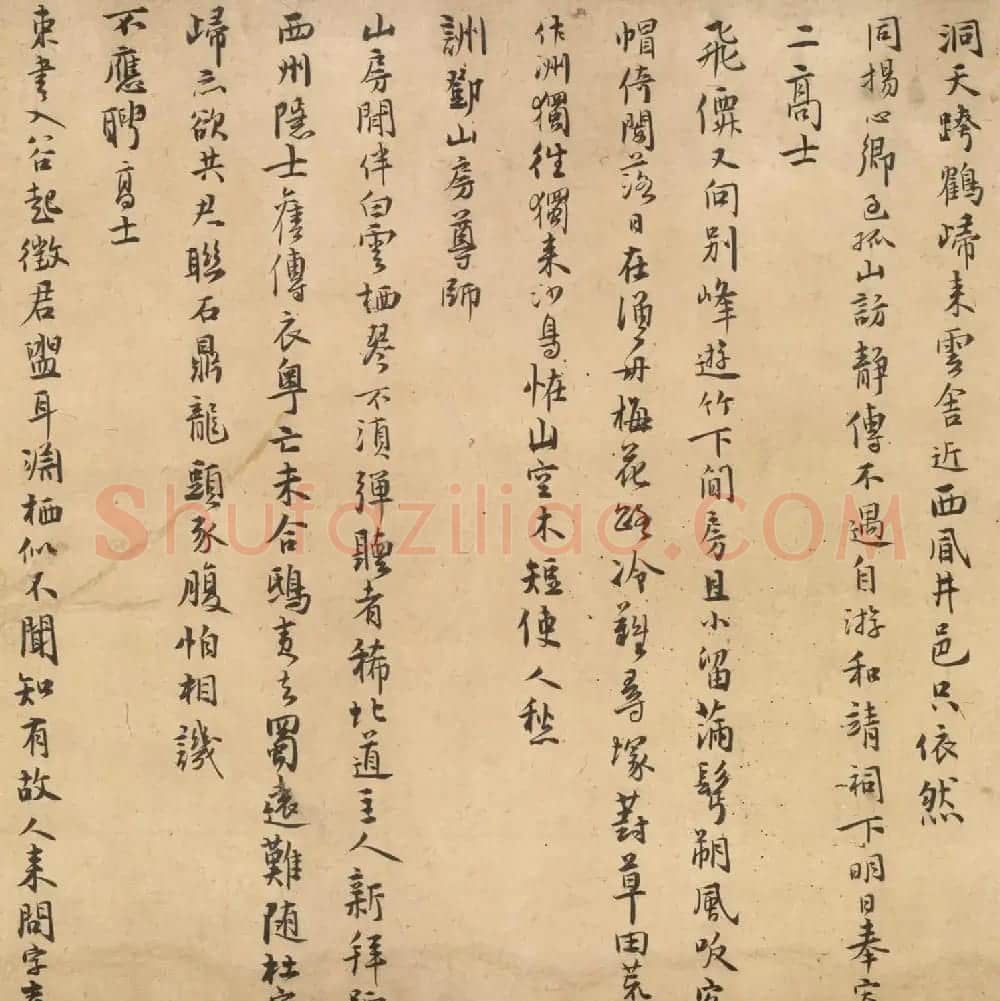 洞天跨鶴歸来雲舍近西風井邑只依然
同楊心卿至孤山訪靜傳不遇自游和靖祠下明日奉寄
二高士
飛僊又向別峰遊竹下閒房且小留滿鬢朔風吹
帽倚闌落日在漁舟梅花路冷難尋塚葑草田荒
作洲獨往獨来沙鳥恠山空木短使人愁
詶鄧山房尊師
山房閒伴白雲栖琴不須彈聽者稀北道主人新拜
西州隱士舊傳衣粤亡未合鴟夷去蜀遠難随杜
歸亦欲共君聯石鼎龍頭豕腹怕相譏
不應聘高士
束書入谷起徵君盥耳㴊栖似不聞知有故人来問字
Shufaziliao.COM